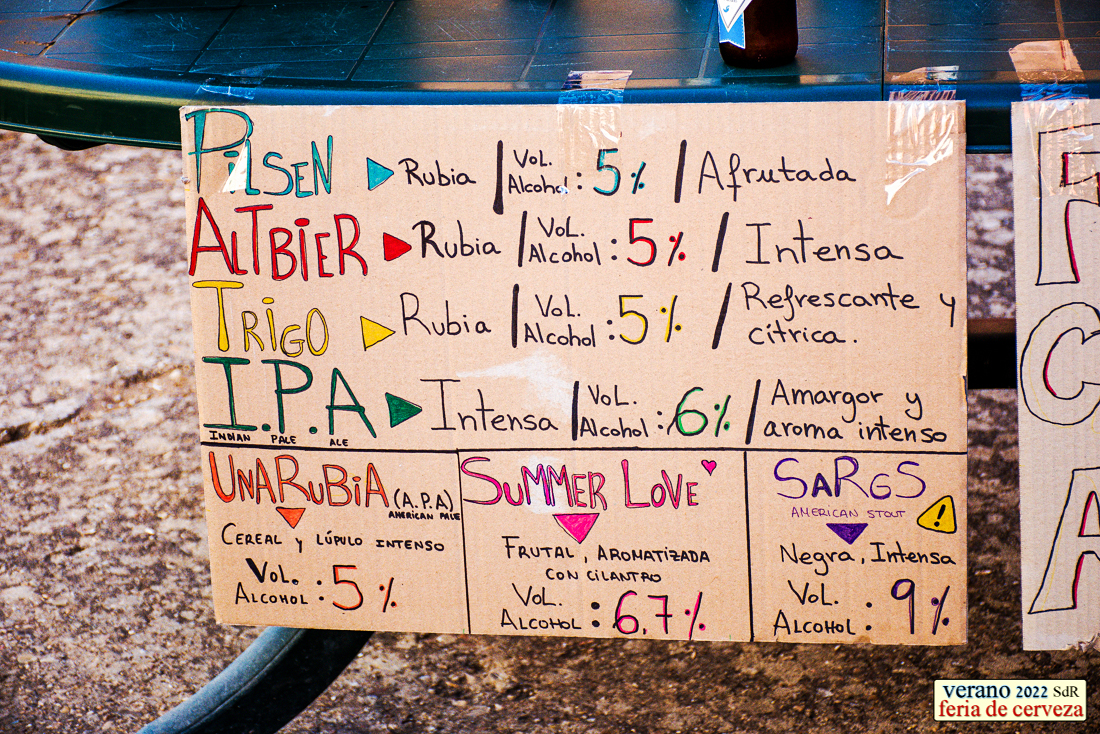 PiLSEN ▶ Rubia / Vol. Alcohol: 5% / Afrutada
ALTBiER ▶ Rubia / Vol. Alcohol: 5% / Intensa
TRiGO ▶ Rubia / Vol. Alcohol: 5% / Refrescante y cítrica.
I.P.A ▶ Intensa / Vol. Alcohol: 6% / Amargor y aroma intenso
INDIAN PALE ALE
UNARUBiA (A.P.A)
AMERICAN PALE
CEREAL y LÚPULO INTENSO
VOL. ALCOHOL: 5%
SuMMER LOVE
FRUTAL, AROMATIZADA
CON CILANTRO
VOL. ALCOHOL: 6,7%
SARGS
AMERICAN STOUT
!
Negra, Intensa
VOL. ALCOHOL: 9%
verano 2022 SdR
feria de cerveza